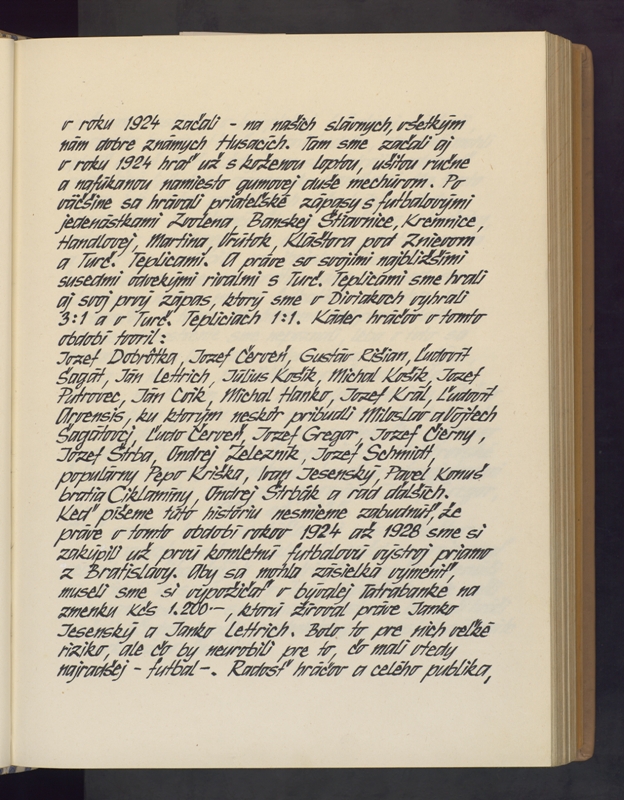 v roku 1924 začali - na našich slávnych, všetkým
nám dobre známych Husacích. Tam sme začali aj
v roku 1924 hrať už s koženou loptou, ušitou ručne
a nafúkanou namiesto gumovej duše mechúrom. Po
väčšine sa hrávali priateľské zápasy s futbalovými
jedenástkami Zvolena, Banskej Štiavnice, Kremnice,
Handlovej, Martina, Vrútok, Kláštora pod Znievom
a Turč. Teplicami. A práve so svojimi najbližšími
susedmi odvekými rivalmi s Turč. Teplicami sme hrali
aj svoj prvý zápas, ktorý sme v Diviakoch vyhrali
3:1 a v Turč. Tepliciach 1:1. Káder hráčov v tomto
období tvoril:
Jozef Dobrôtka, Jozef Červeň, Gustáv Rišian, Ľudovít
Šagát, Ján Lettrich, Július Košík, Michal Košík, Jozef
Putrovec, Ján Cvik, Michal Hanko, Jozef Kráľ, Ľudovít
Arvensis, ku ktorým neskôr pribudli Miloslav a Vojtech
Šagátovci, Ľudo Červeň, Jozef Gregor, Jozef Čierny,
Jozef Štrba, Ondrej Železník, Jozef Schmidt,
populárny Pepo Kriška, Ivan Jesenský, Pavel Konuš
bratia Ciklaminy, Ondrej Štrbák a rad ďalších.
Keď píšeme túto históriu nesmieme zabudnúť, že
práve v tomto období rokov 1924 až 1928 sme si
zakúpili už prvú komletnú futbalovú výstroj priamo
z Bratislavy. Aby sa mohla zásielka vymeniť,
museli sme si vypožičať v bývalej Tatrabanke na
zmenku Kčs 1.200.--, ktorú žiroval práve Janko
Jesenský a Janko Lettrich. Bolo to pre nich veľké
riziko, ale čo by neurobili pre to, čo mali vtedy
najradšej - futbal -. Radosť hráčov a celého publika,